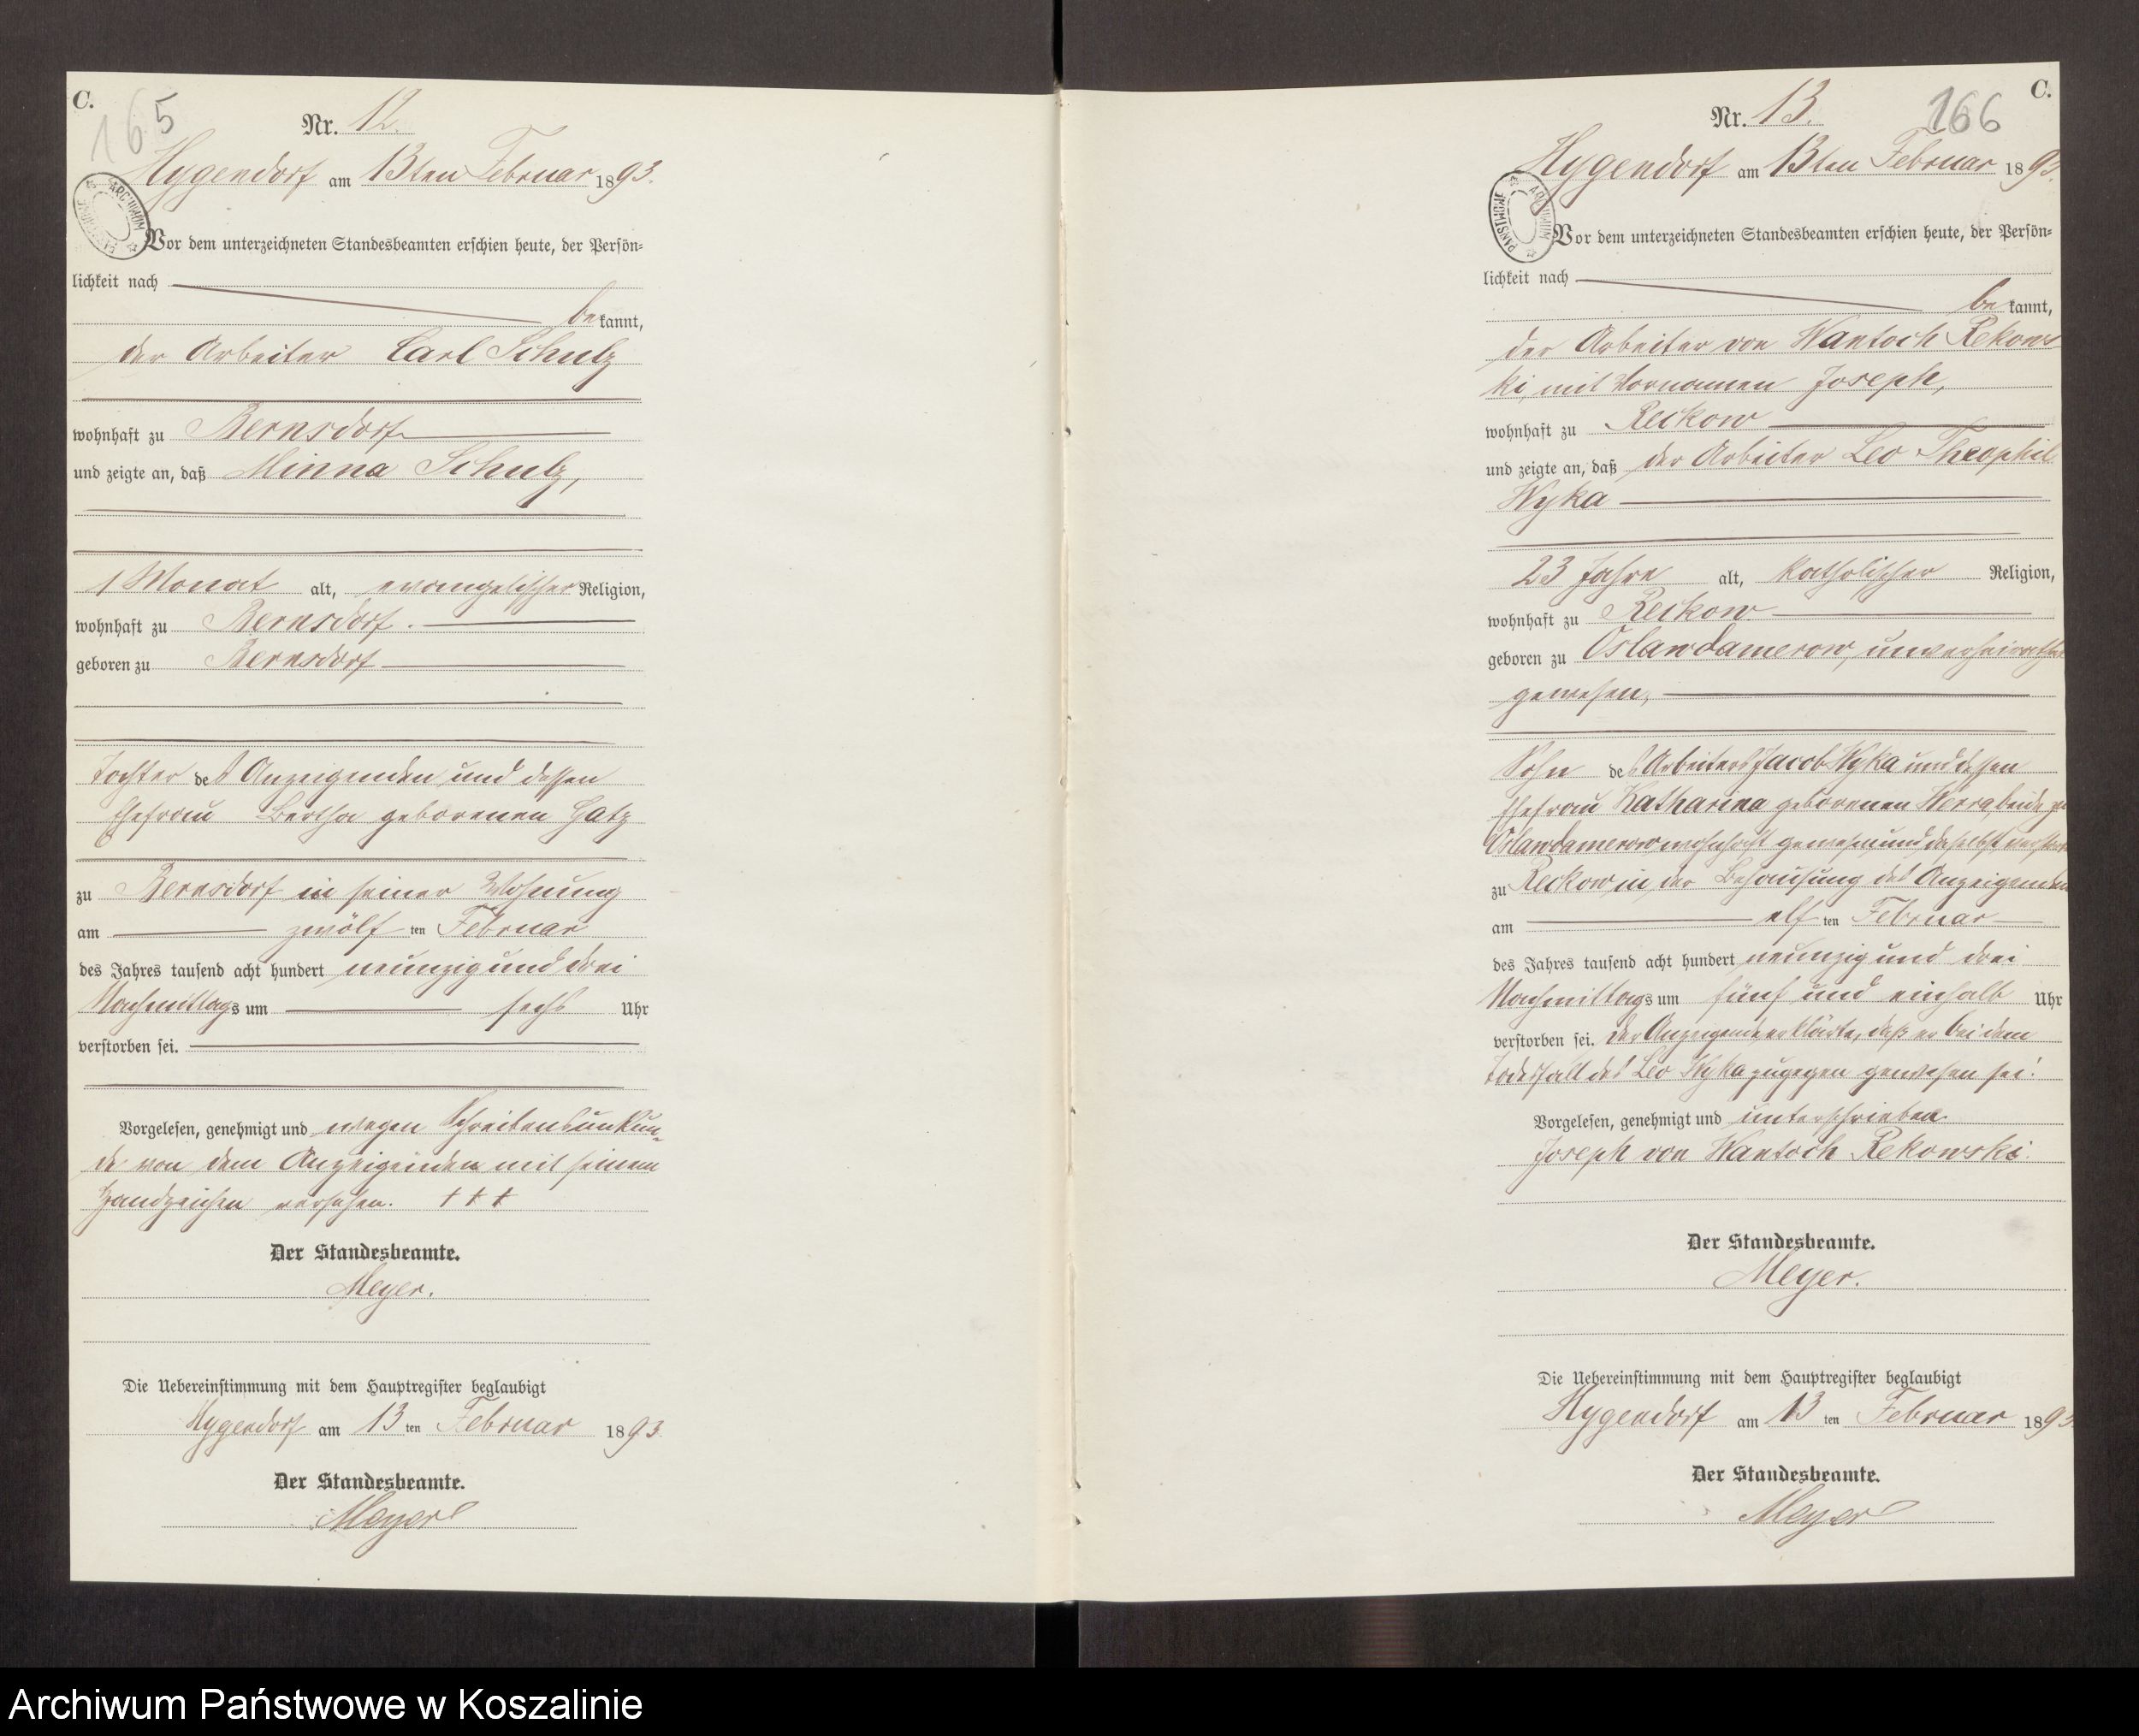 C.
165
Nr. 12.
Hygendorf am 13ten Februar 1893.
ARCHIWUM PAŃSTWOWE
Vor dem unterzeichneten Standesbeamten erschien heute, der Persön-
lichkeit nach
bekannt,
der Arbeiter Carl Schulz
wohnhaft zu Bernsdorf
und zeigte an, daß Minna Schulz,
1 Monat alt, evangelischer Religion,
wohnhaft zu Bernsdorf.
geboren zu Bernsdorf
Tochter des Anzeigenden und dessen
Ehefrau Bertha geborenen Gatz
zu Bernsdorf in seiner Wohnung
am zwölf ten Februar
des Jahres tausend acht hundert neunzig und drei
Nachmittags um sechs Uhr
verstorben sei.
Vorgelesen, genehmigt und wegen Schreibensunkun-
de von dem Anzeigenden mit seinem
Handzeichen versehen. + + +
Der Standesbeamte.
Meyer.
Die Uebereinstimmung mit dem Hauptregister beglaubigt
Hygendorf am 13 ten Februar 1893
Der Standesbeamte.
Meyer
C.
166
Nr. 13.
Hygendorf am 13ten Februar 1893.
ARCHIWUM PAŃSTWOWE
Vor dem unterzeichneten Standesbeamten erschien heute, der Persön-
lichkeit nach
bekannt,
der Arbeiter von Wantoch Rekows-
ki, mit Vornamen Joseph,
wohnhaft zu Reckow
und zeigte an, daß der Arbeiter Leo Theophil
Wyka
23 Jahre alt, katholischer Religion,
wohnhaft zu Reckow
geboren zu Oslawdamerow, unverheirathet
gewesen,
Sohn des Arbeiters Jacob Wyka und dessen
Ehefrau Katharina geborenen beide zu
Oslawdamerow wohnhaft gewesen und daselbst verstorben
zu Reckow in der Behausung des Anzeigenden
am elf ten Februar
des Jahres tausend acht hundert neunzig und drei
Nachmittags um fünf und einhalb Uhr
verstorben sei. Der Anzeigende erklärte, daß er bei dem
Todesfall des Leo Wyka zugegen gewesen sei.
Vorgelesen, genehmigt und unterschrieben
Joseph von Wantoch Rekowski.
Der Standesbeamte.
Meyer.
Die Uebereinstimmung mit dem Hauptregister beglaubigt
Hygendorf am 13 ten Februar 1893
Der Standesbeamte.
Meyer
Archiwum Państwowe w Koszalinie